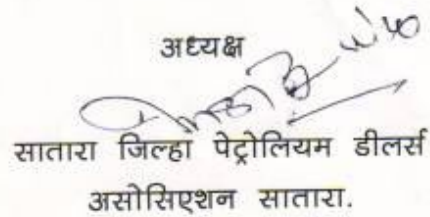 अध्यक्ष
सातारा जिल्हा पेट्रोलियम डीलर्स
असोसिएशन सातारा.